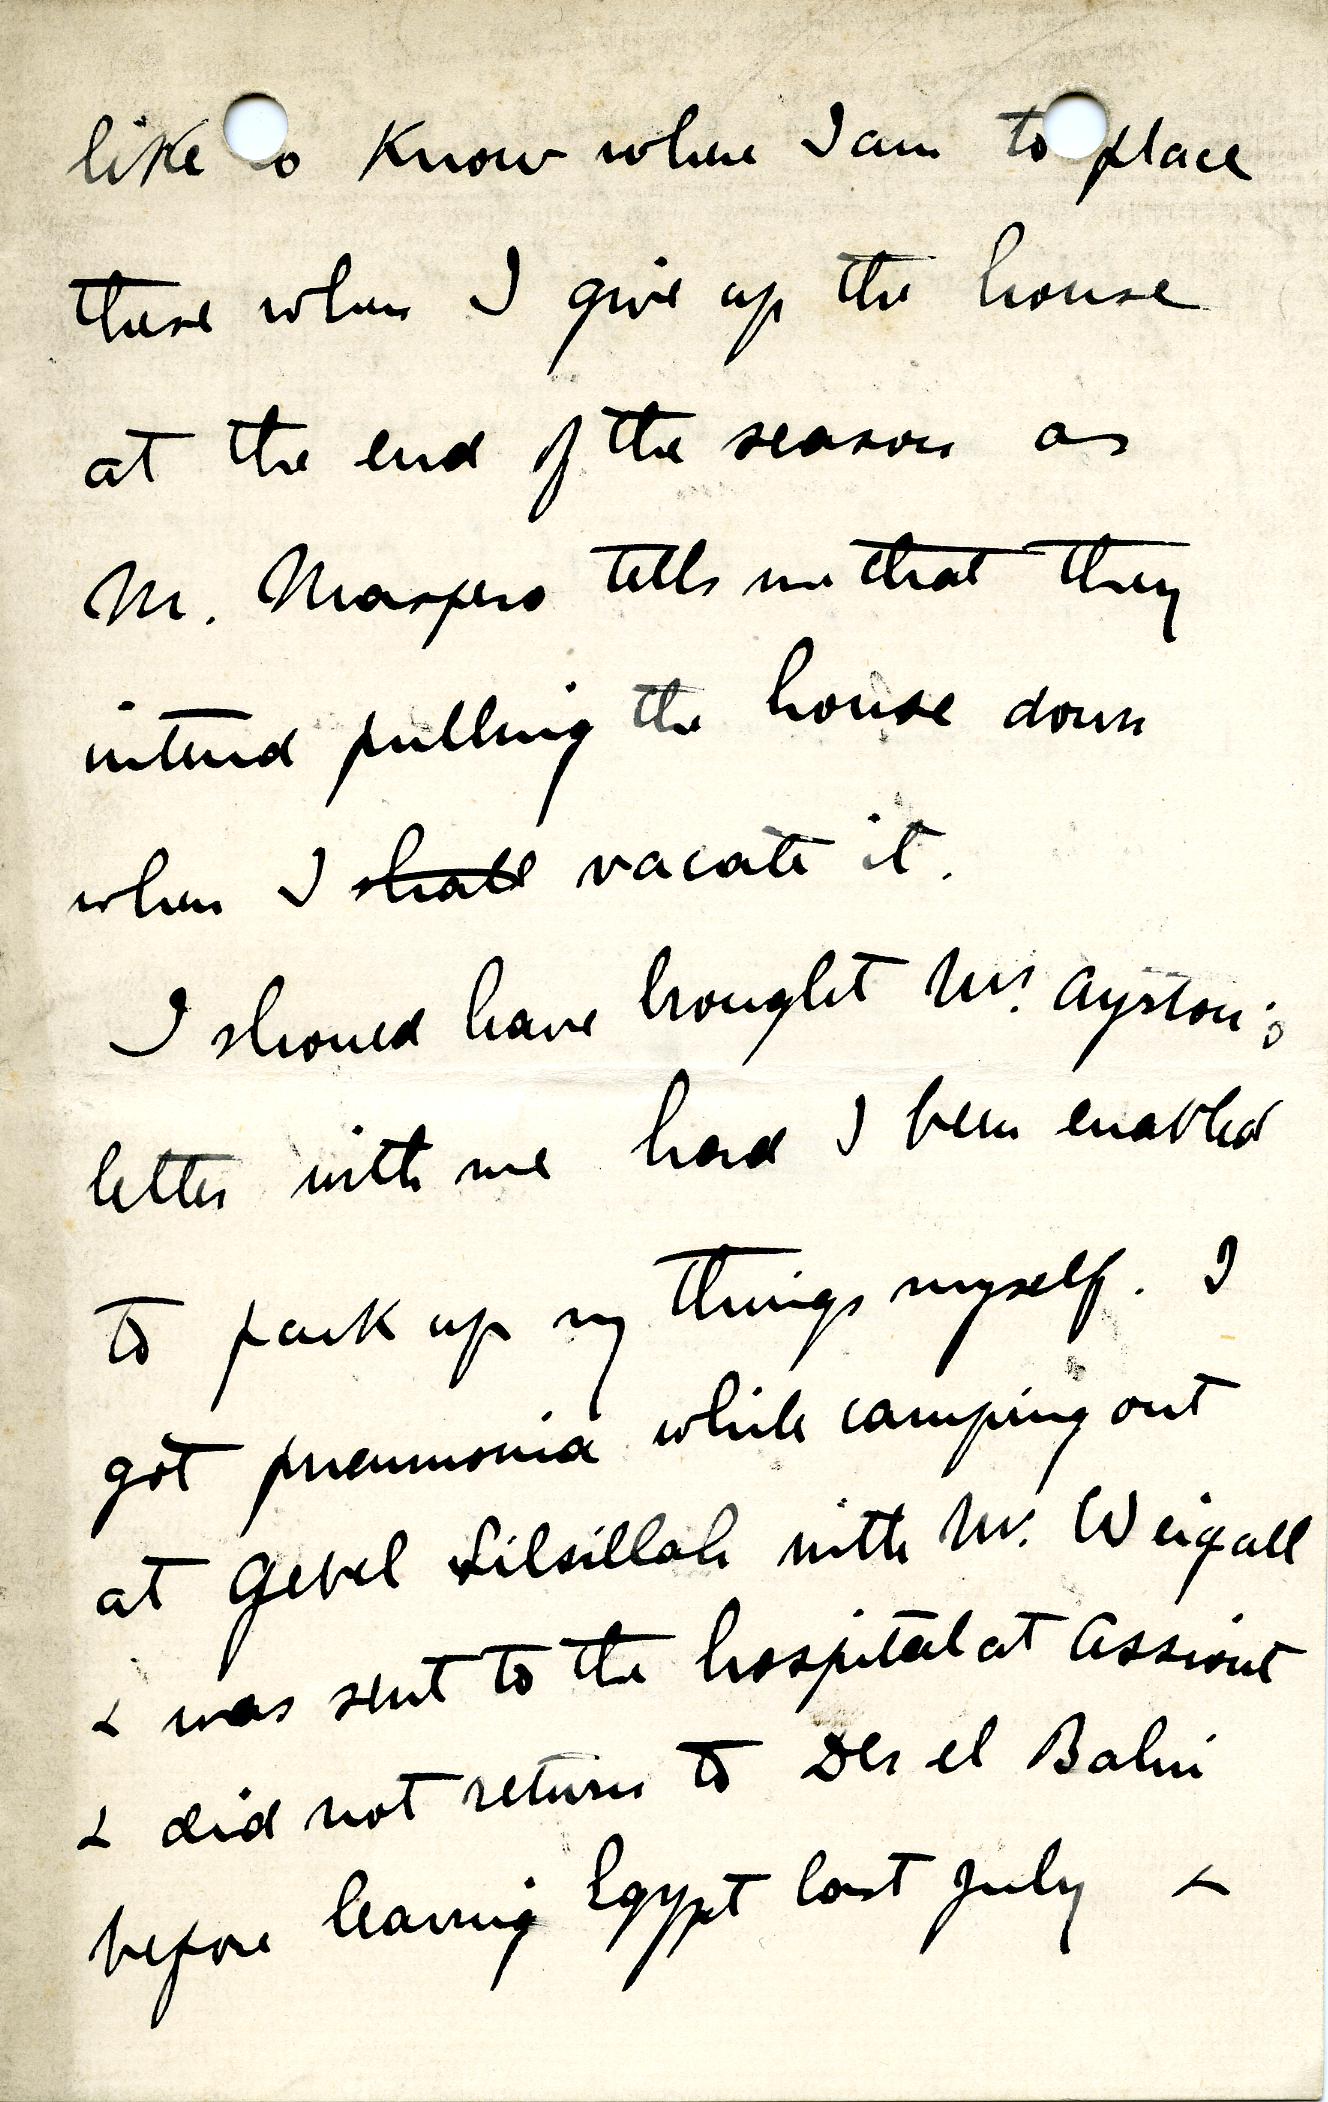 like to know where I am to place
these when I give up the house
at the end of the season as
M. Maspero tells me that they
intend pulling the house down
when I shall vacate it.
I should have brought Mr. Ayrton's
letter with me had I been enabled
to pack up my things myself. I
got pneumonia while camping out
at Gebel Silsillah with Mr. Weigall
& was sent to the hospital at Assiout
& did not return to Der el Bahri
before leaving Egypt last July &